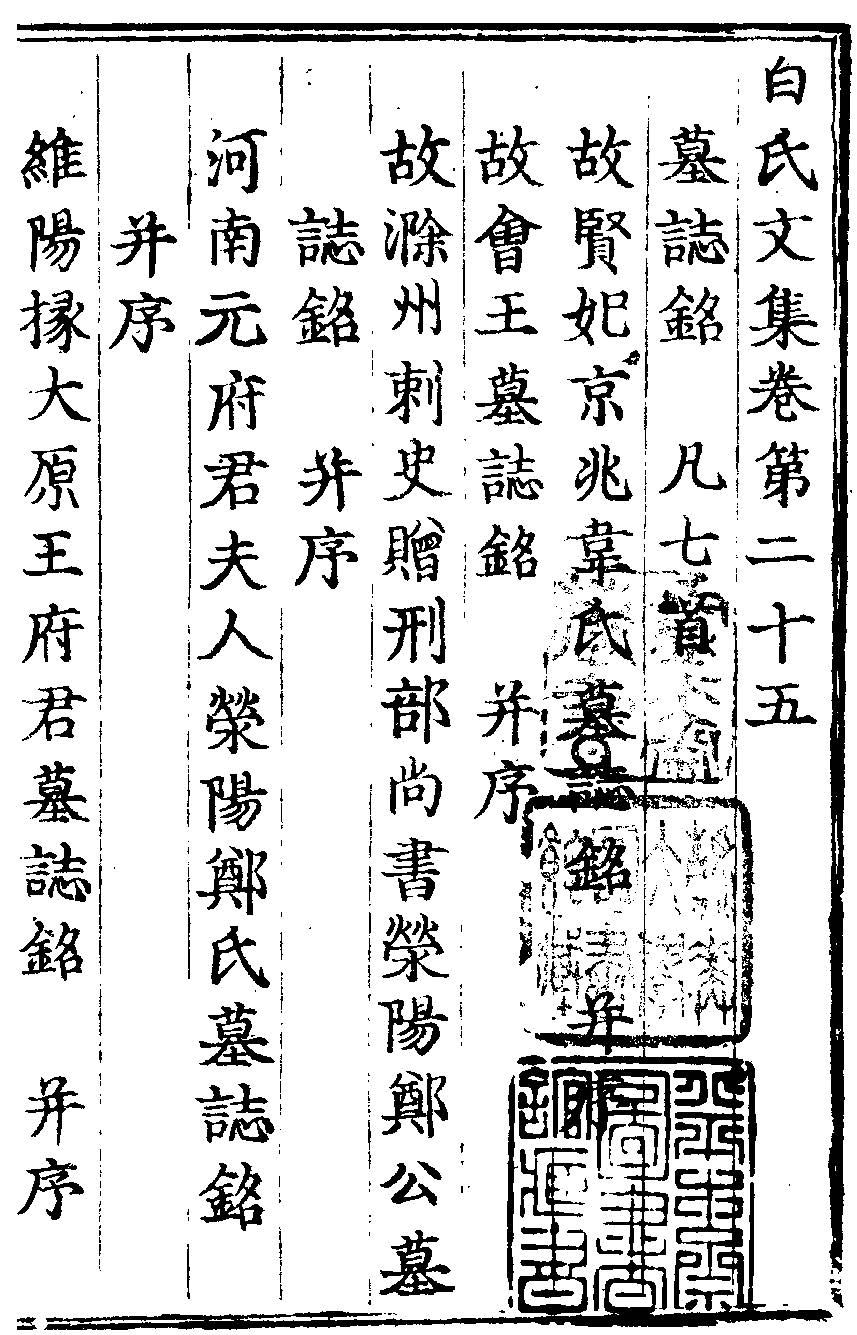 白氏文集卷第二十五
墓誌銘 凡七首
故賢妃京兆韋氏墓誌銘 并序
故會王墓誌銘 并序
故滁州刺史贈刑部尚書滎陽鄭公墓
誌銘 并序
河南元府君夫人滎陽鄭氏墓誌銘
并序
維陽掾大原王府君墓誌銘 并序